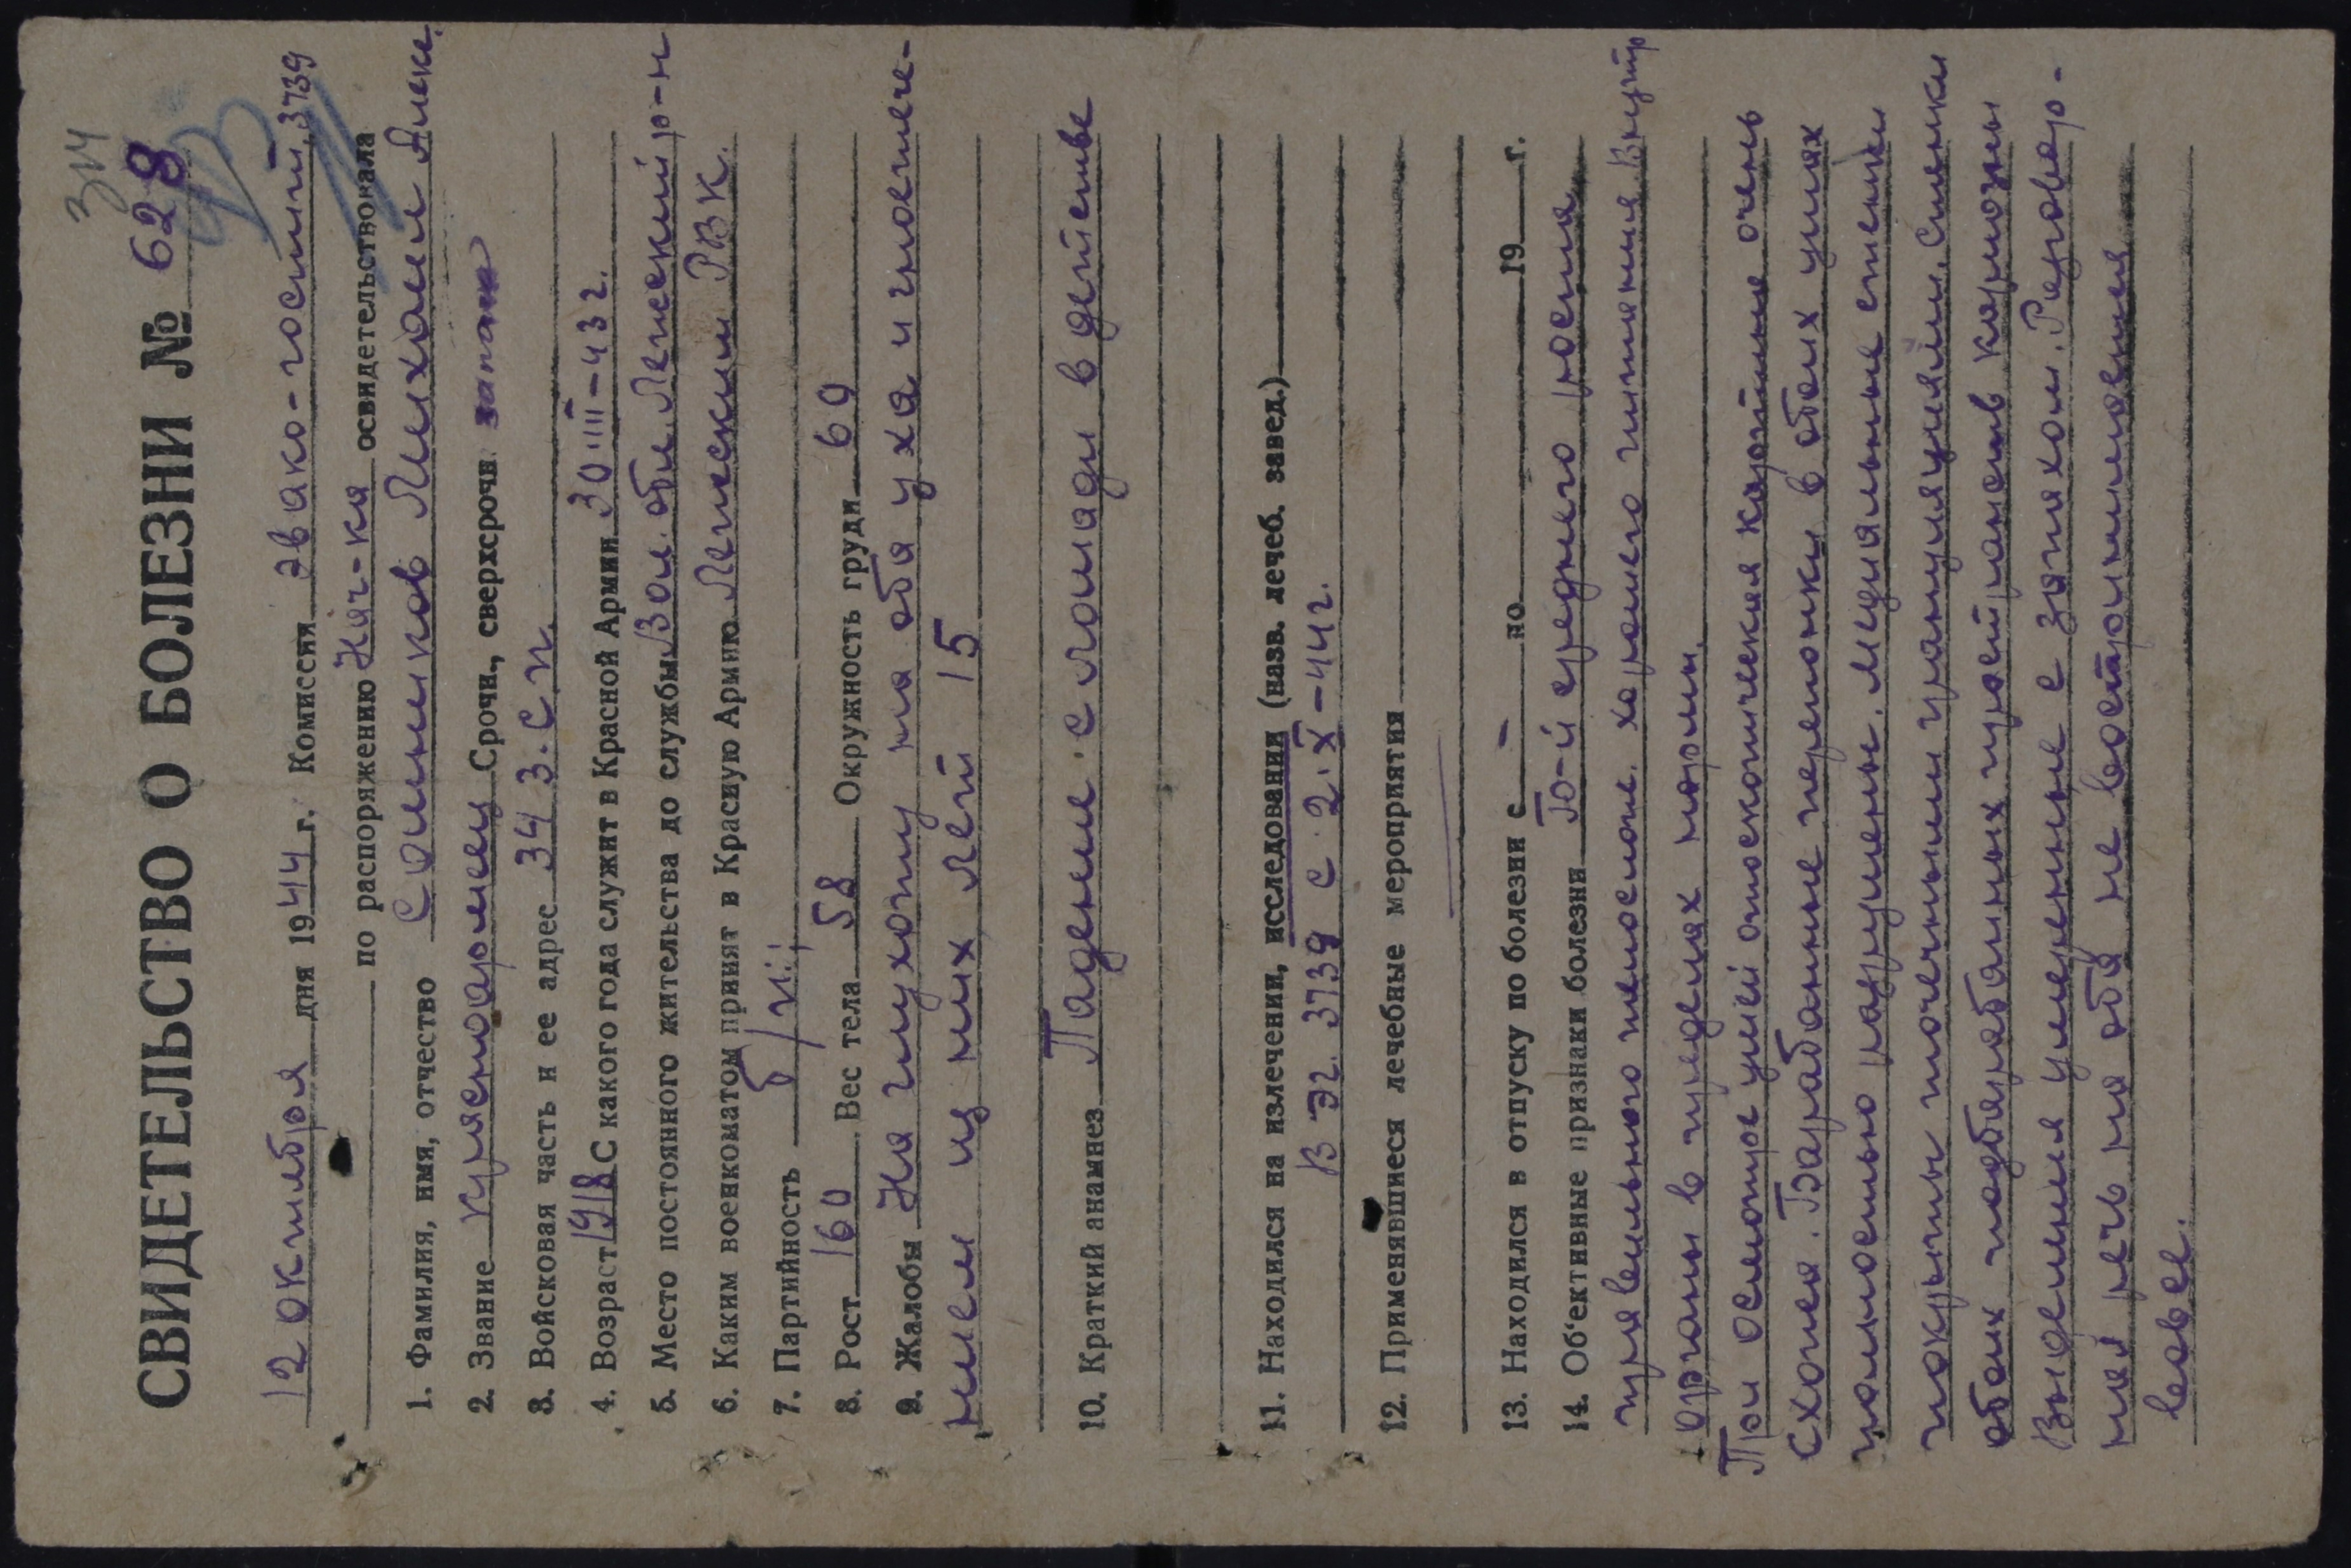 314
СВИДЕТЕЛЬСТВО О БОЛЕЗНИ № 628
12 октября дня 1944 г. Комиссия эвако-госпит. 3739
по распоряжению Нач-ка освидетельствовала
1. Фамилия, имя, отчество Сошников Михаил Алекс.
2. Звание красноармеец Срочн., сверхсрочн. запаса
3. Войсковая часть и ее адрес 343. с п.
4. Возраст 1918 С какого года служит в Красной Армии 30.III-43 г.
5. Место постоянного жительства до службы Вол. обл.
6. Каким военкоматом принят в Красную Армию РВК.
7. Партийность б/п.;
8. Рост 160 Вес тела 58 Окружность груди 69
9. Жалобы На глухоту на оба уха и гноетече-
ние из них лет 15
10. Краткий анамнез Падение с лошади в детстве
11. Находился на излечении, исследовании (назв. лечеб. завед.)
В ЭГ. 3739 с 2.X-44 г.
12. Применявшиеся лечебные мероприятия
13. Находился в отпуску по болезни с – по 19 г.
14. Об'ективные признаки болезни Б-й среднего роста
правильного телослож. хорошего питания. Внутр
органы в пределах нормы.
При осмотре ушей отоскопическая картина очень
схожая. Барабанные перепонки в обоих ушах
полностью разрушены. Медиальные стенки
покрыты точечными грануляциями. Стенки
обоих надбарабанных пространств кариозны
Выделения умеренные с запахом. Разговор-
ная речь на оба не воспринимается
вовсе.